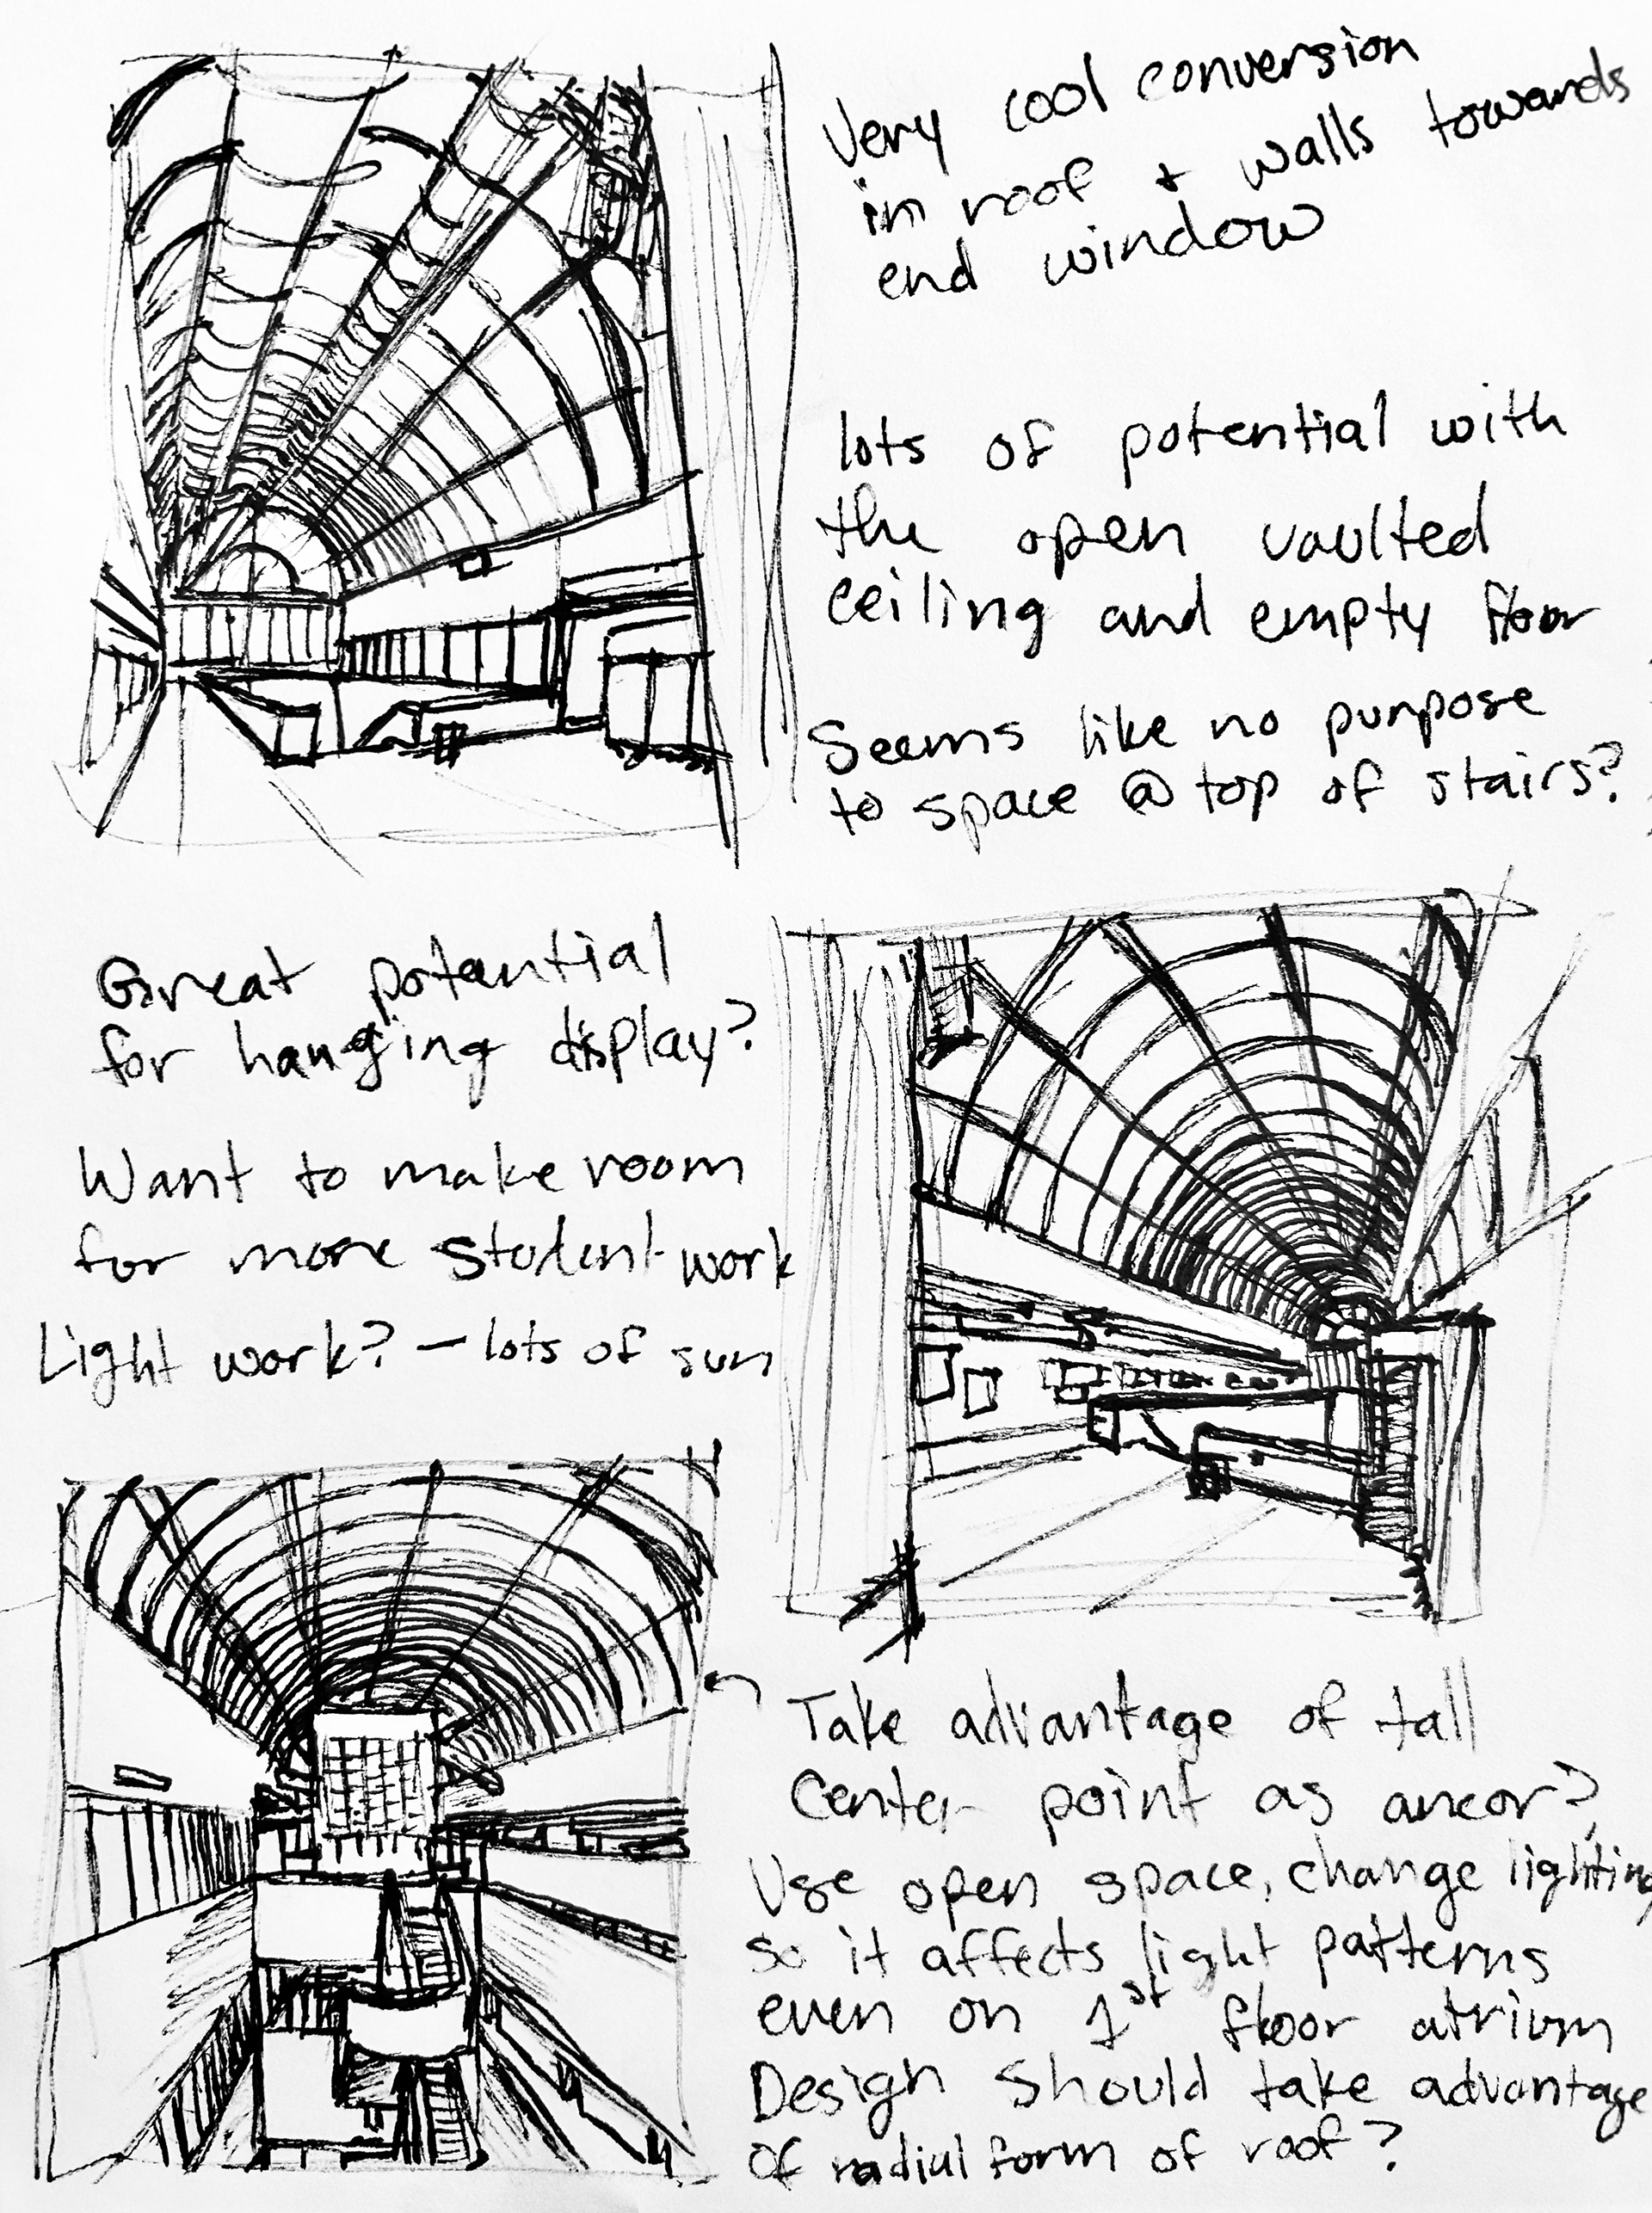 Very cool conversion
in roof + walls towards
end window
lots of potential with
the open vaulted
ceiling and empty floor
Seems like no purpose
to space @ top of stairs?
Great potential
for hanging display?
Want to make room
for more student work
Light work? – lots of sun
Take advantage of tall
Center point as ancor?
Use open space, change lighting
so it affects light patterns
even on 1st floor atrium
Design should take advantage
of radial form of roof?